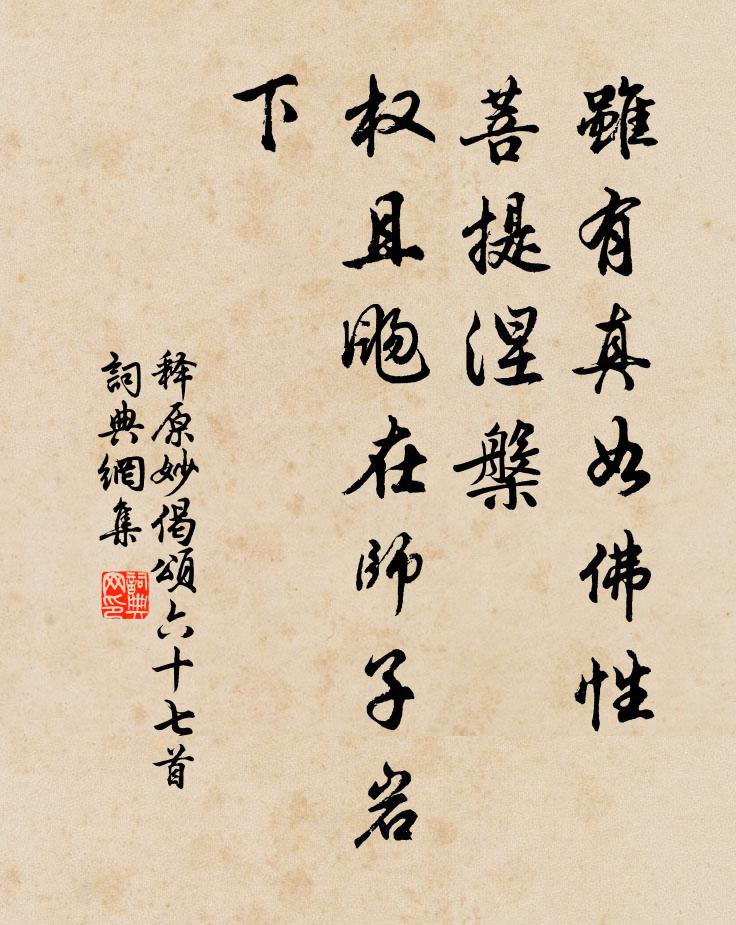 雖有真如佛性
菩提涅槃
权且飏在師子岩
下
释原妙偈頌六十七首
詞典網集
詞典
网印